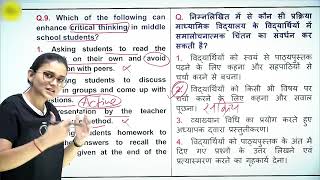 Q.9. Which of the following can
enhance critical thinking in middle
school students?
1. Asking students to read the
on their own and (avoid
on with peers.
ing students to discuss
and come up with
stions. Active
presentation by the teacher
method.
students homework to
answers to recall the
given at the end of the
Q. निम्नलिखित में से कौन सी प्रक्रिया
माध्यमिक विद्यालय के विद्यार्थियों में
समालोचनात्मक चिंतन का संवर्धन कर
सकती है?
1. विद्यार्थियों को स्वयं से पाठ्यपुस्तक
पढ़ने के लिए कहना और सहपाठियों से
चर्चा करने से बचना।
2. विद्यार्थियों को किसी भी विषय पर
चर्चा करने के लिए कहना और सवाल
पूछना।
3. व्याख्यान विधि का प्रयोग करते हुए
अध्यापक द्वारा प्रस्तुतीकरण।
4. विद्यार्थियों को पाठ्यपुस्तक के अंत में
दिए गए प्रश्नों के उत्तर लिखने एवं
प्रत्यास्मरण करने का गृहकार्य देना।